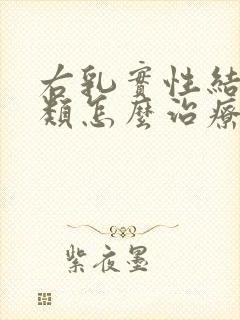 右乳實性結
類怎麼治療
紫夜墨